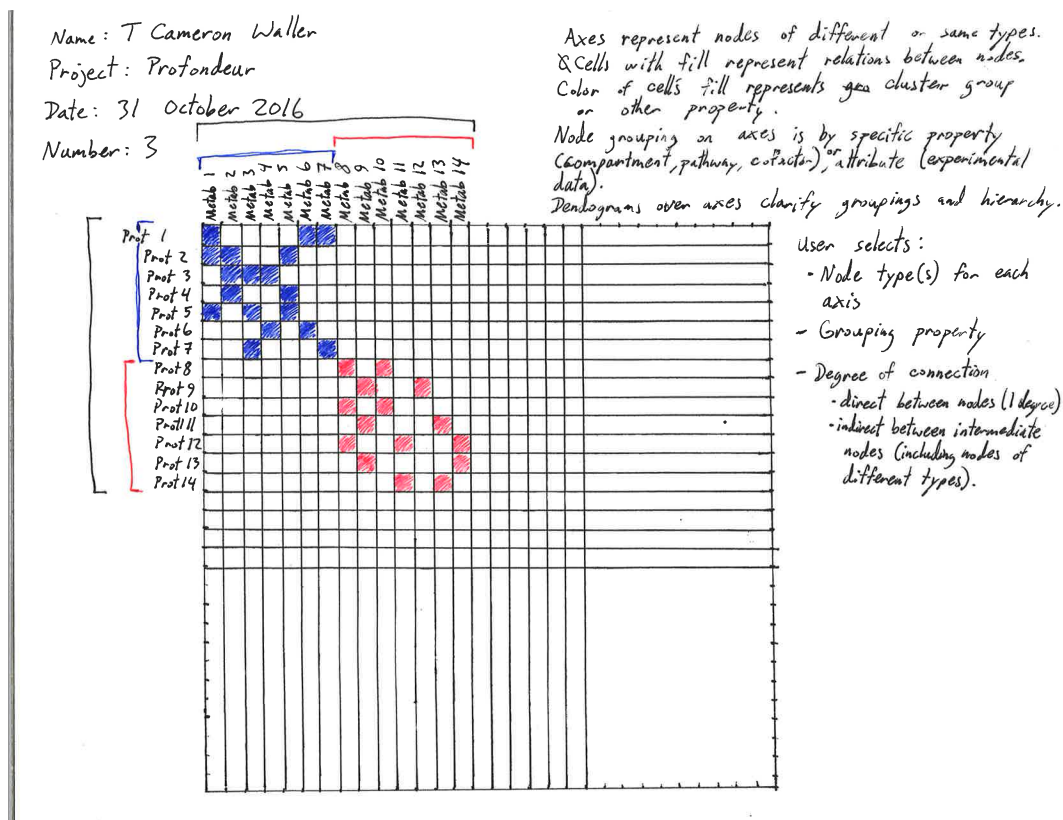 Name: T Cameron Waller
Project: Profondeur
Date: 31 October 2016
Number: 3
Axes represent nodes of different or same types.
Cells with fill represent relations between nodes.
Color of cell's fill represents cluster group
or other property.
Node grouping on axes is by specific property
(compartment, pathway, cofactor) or attribute (experimental
data).
Dendograms over axes clarify groupings and hierarchy.
User selects:
· Node type(s) for each
axis
- Grouping property
- Degree of connection
· direct between nodes (1 degree)
· indirect between intermediate
nodes (including nodes of
different types).
Metab 1
Metab 2
Metab 3
Metab 4
Metab 5
Metab 6
Metab 7
Metab 8
Metab 9
Metab 10
Metab 11
Metab 12
Metab 13
Metab 14
Prot 1
Prot 2
Prot 3
Prot 4
Prot 5
Prot 6
Prot 7
Prot 8
Prot 9
Prot 10
Prot 11
Prot 12
Prot 13
Prot 14